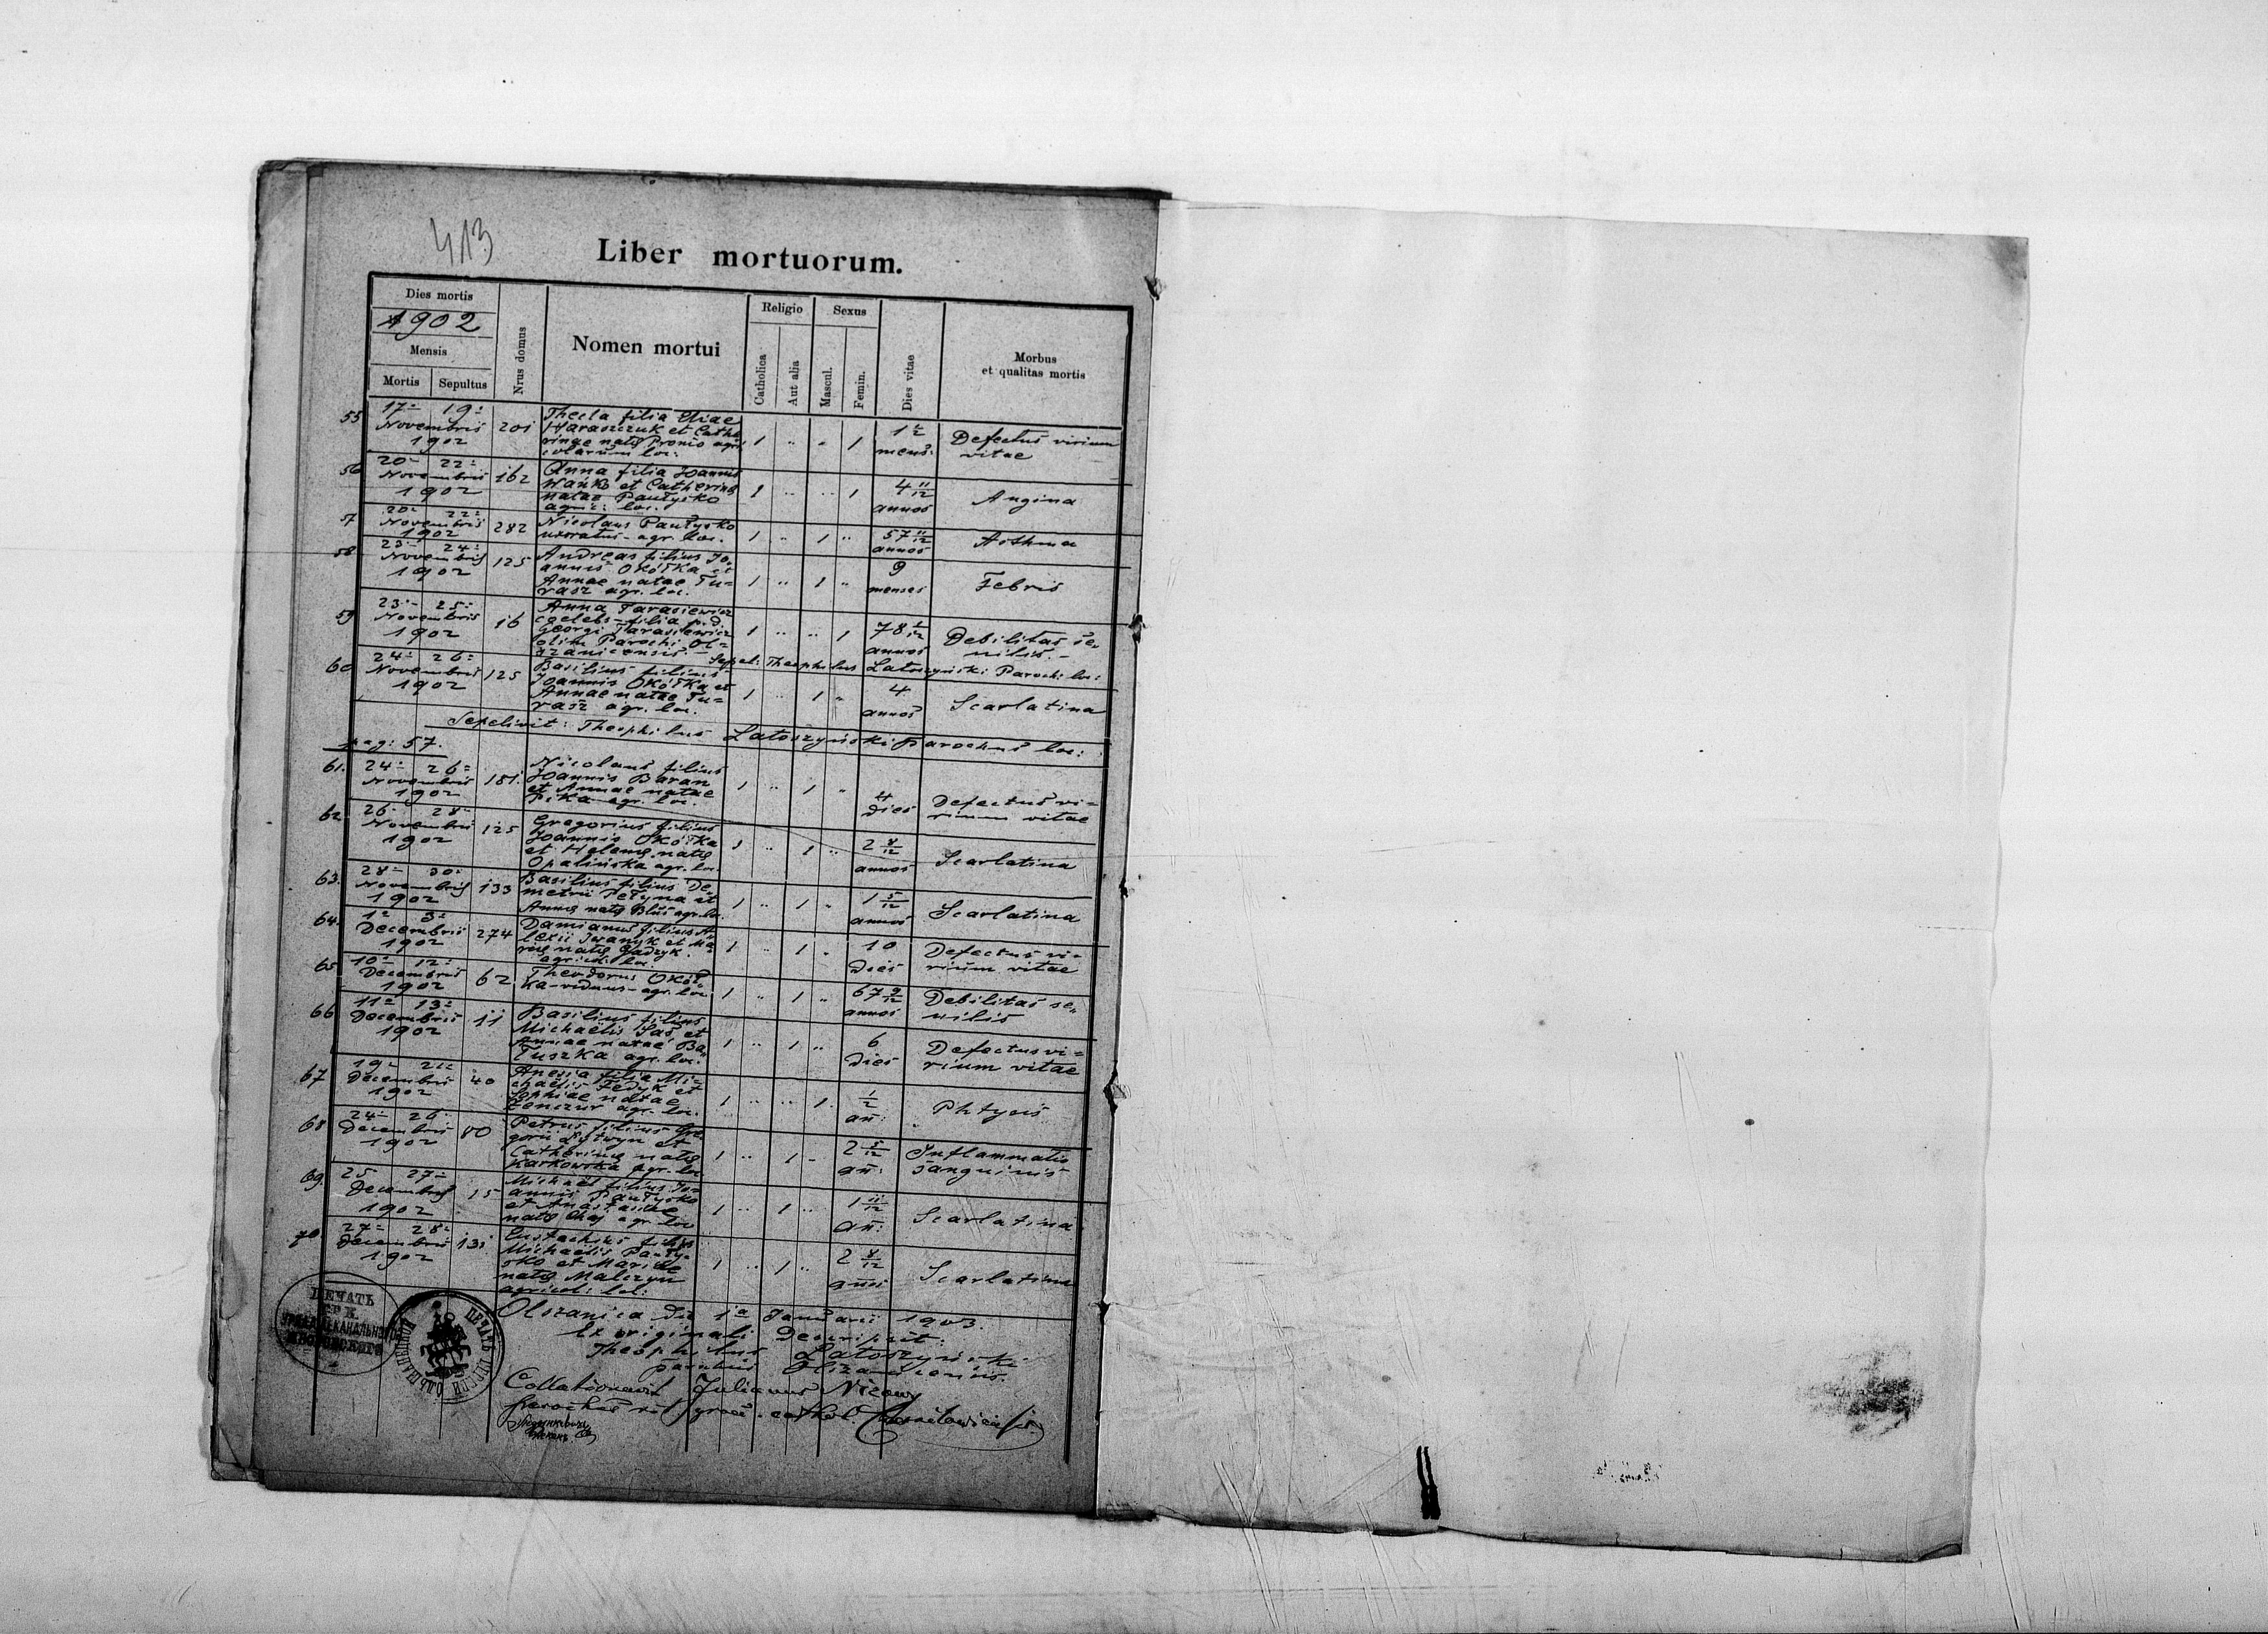 413
Liber mortuorum.
Dies mortis
1902
Mensis
Mortis Sepultus
Nrus domus
Nomen mortui
Religio
Catholica
Aut alia
Sexus
Mascul.
Femin.
Dies vitae
Morbus
et qualitas mortis
55 17 19
Novembris 201
1902
Thecla filia Eliae
Haraszczuk et Catha
rinae natae Pronio agri
colarum loc:
1 " " 1
mens:
Defectus virium
vitae
56 20 22
Novembris 162
1902
Anna filia Joannis
Wańko et Catherinae
natae Pautysko
agric: loc.
1 " " 1
4 11/12
annos
Angina
57 20 22
Novembris 282
1902
Nicolaus Pautysko
uxoratus - agr. loc.
1 " 1 "
57 11/12
annos
Asthma
58 23 24
Novembris 125
1902
Andreas filius Jo
annis Okótka et
Annae natae Tu=
rasz agr. loc.
1 " 1 "
9
menses
Febris
59 23 25
Novembris 16
1902
Anna Tarasiewicz
coelebs - filia
Georgi Tarasiewicz
olim Parochi Ol=
szanicensis.
1 " " 1
78
annos
Debilitas se
nilis.
Sepel: Theophilus Latoszyński Parochi loc:
60 24 26
Novembris 125
1902
Basilius filius
Joannis Okótka et
Annae natae Tu=
rasz agr. loc.
1 " 1 "
4
annos
Scarlatina
Sepelivit: Theophilus Latoszyński parochus loc:
pag: 57.
61. 24 26
Novembris 181.
1902
Nicolaus filius
Joannis Baran
et Annae natae
Pika agr. loc.
1 " 1 "
4
dies
Defectus vi=
rium vitae
62. 26 28
Novembris 125
1902
Gregorius filius
Joannis Okótka
et Helenae natae
Opalińska agr. loc.
1 " 1 "
2 8/12
annos
Scarlatina
63. 28 30
Novembris 133
1902
Basilius filius De
metrii Petyna et
Annae natae Bluś agr. loc.
1 " 1 "
1 5/12
annos
Scarlatina
64. 1 3
Decembris 274
1902
Damianus filius A
lexii Iwanyk et Ma
riae natae
agricol: loc.
1 " 1 "
10
dies
Defectus vi=
rium vitae
65 10 12
Decembris 62
1902
Theodorus Okót
ka - viduus - agr. loc.
1 " 1 "
67 9/12
annos
Debilitas se
nilis
66 11 13
Decembris 11
1902
Basilius filius
Michaëlis Jaś et
Annae natae Ba
tuszka agr. loc.
1 " 1 "
6
dies
Defectus vi=
rium vitae
67 19 21
Decembris 40
1902
Anesia filia Mi=
chaëlis Fedyk et
Sophiae natae
Zenczur agr. loc.
1 " " 1
1/2
an:
Phtysis
68 24 26
Decembris 80
1902
Petrus filius Gre
gorii Lytwyn et
Catherinae natae
Karkowska agr. loc
1 " 1 "
2 5/12
an:
Inflammatio
sanguinis
69. 25 27
Decembris 15
1902
Michaël filius Jo=
annis Pautysko
et Anastasiae
natae agr. loc
1 " 1 "
1 11/12
an:
Scarlatina
70 27 28
Decembris 131
1902
Eustachius filius
Michaëlis Pauty=
sko et Mariae
natae Malczyn
agricol: loc:
1 " 1 "
2 8/12
annos
Scarlatina
Olszanica die 1a Januarii 1903.
Ex originali descripsit:
Theophilus Latoszyński
parochus Olszanicensis.
Collationavit Julianus
parochus rit. graec. cathol.
ПЕЧАТЬ
ГР. К.
УРЯДА ДЕКАНАЛЬНОГО
ПЕЧАТЬ ЦЕРКВИ ОЛЬШАНИЦКОЙ